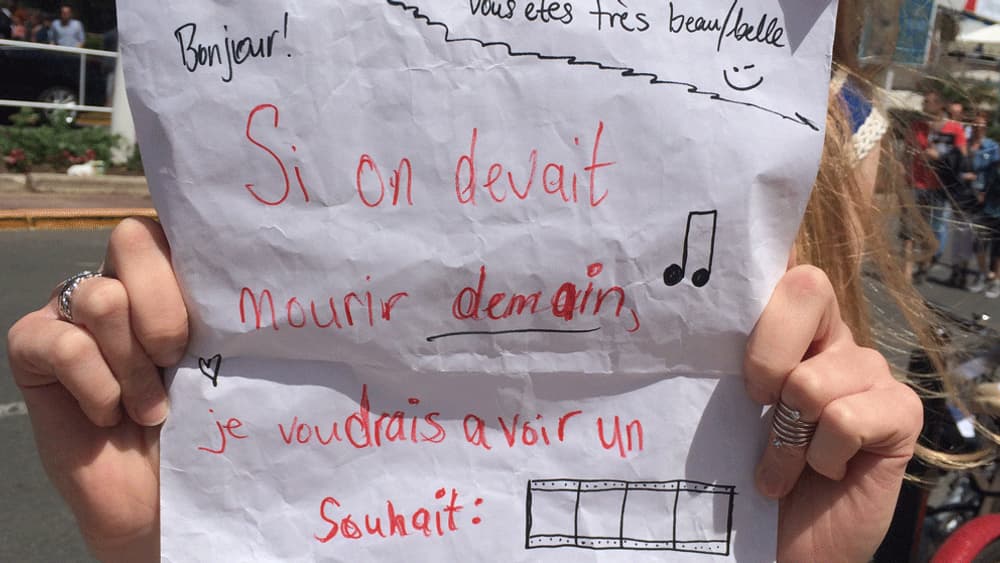 Bonjour!
vous etes très beau/belle
Si on devait
mourir demain,
je voudrais avoir un
souhait: